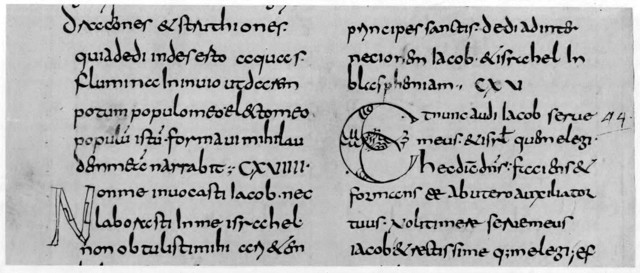 dracones & strutiones
quia dedi in deserto aquas
flumina in invio ut darem
potum populo meo electo meo
populū istū formavi mihi lau
dem meā narrabit CXVIIII
Non me invocasti Iacob nec
laborasti in me israhel
non obtulisti mihi ari&em
principes sanctos dedi ad inter
necionem Iacob & israhel in
blasphemiam
Et nunc audi Iacob serve 44.
meus & isrl quem elegi
Haec dicit dns faciens &
formans te ab utero auxiliator
tuus Noli timere serve meus
iacob & rectissime quem elegi ef